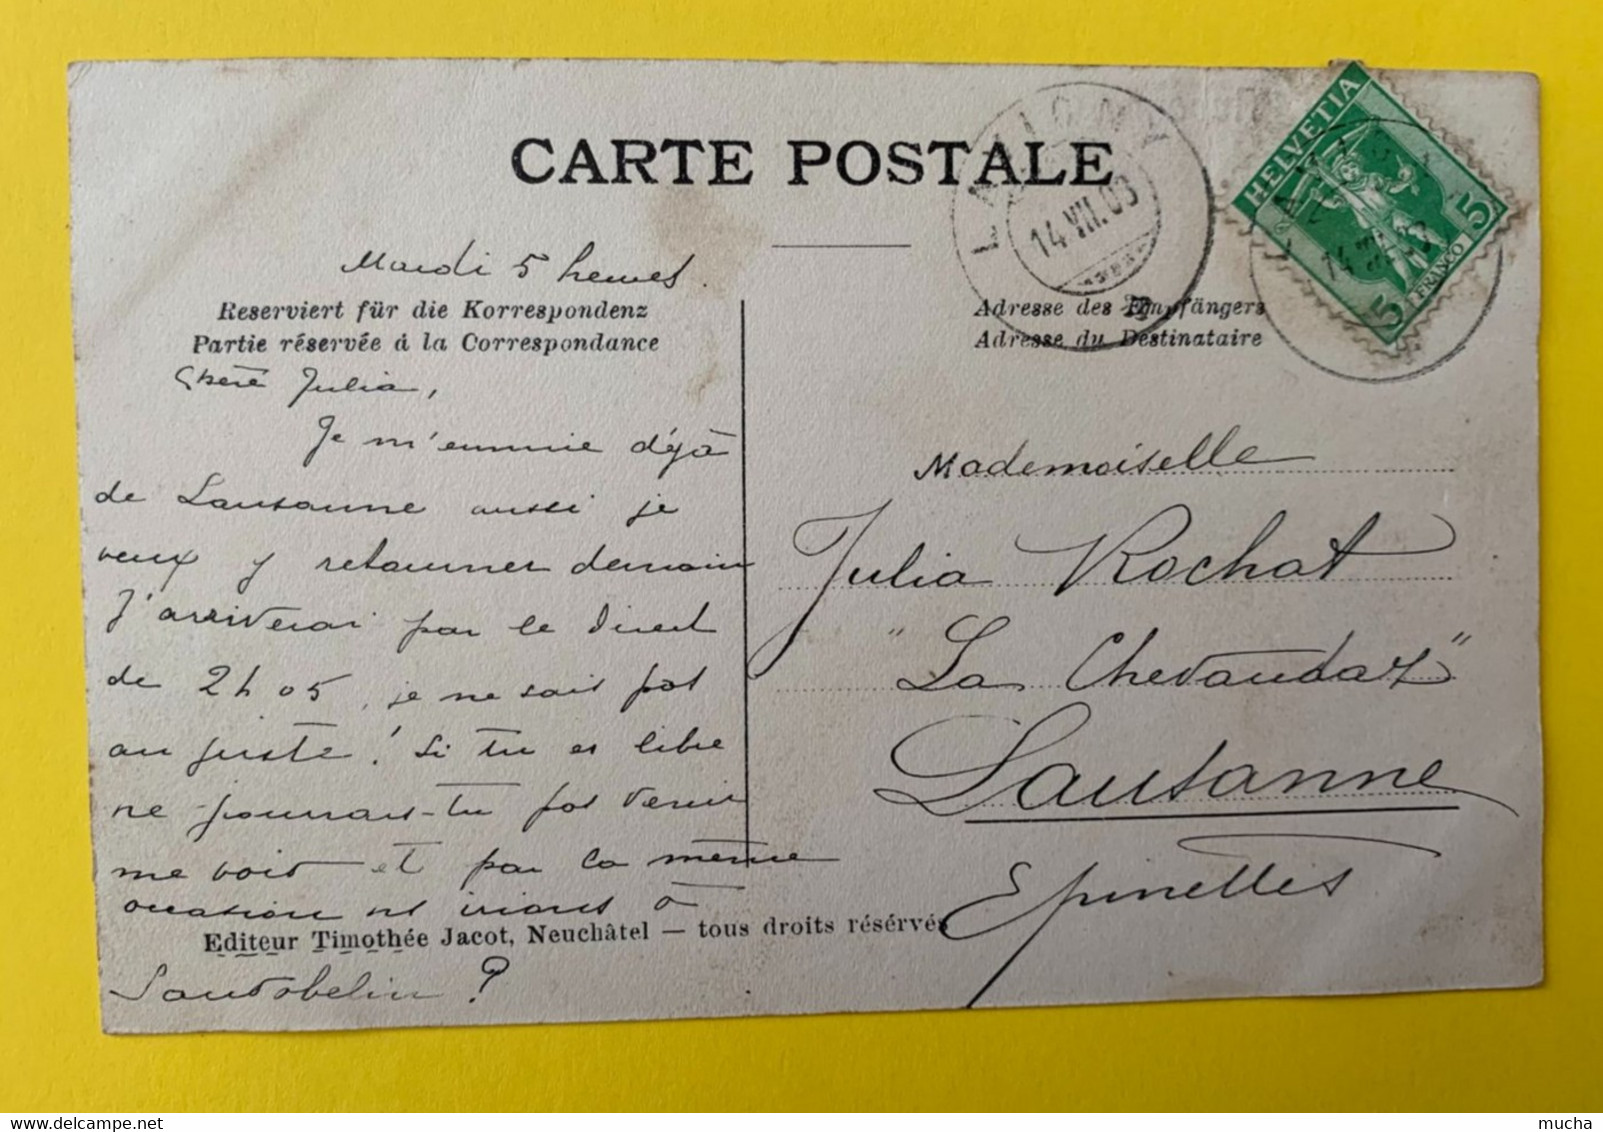 CARTE POSTALE
LAVIGNY
14.VII.09
HELVETIA
5
5
FRANCO
Mardi 5 heures.
Reserviert für die Korrespondenz
Partie réservée à la Correspondance
Adresse des Empfängers
Adresse du Destinataire
Chère Julia,
Je m'ennuie déjà
de Lausanne aussi je
veux y retourner demain
J'arriverai par le direct
de 2h05, je ne sais pas
au juste! Si tu es libre
ne pourrais-tu pas venir
me voir et par la même
occasion irions à
Sauvabelin?
Mademoiselle
Julia Rochat
"La Chevauday"
Lausanne
Epinettes
Editeur Timothée Jacot, Neuchâtel — tous droits réservés
delcampe.net
mucha